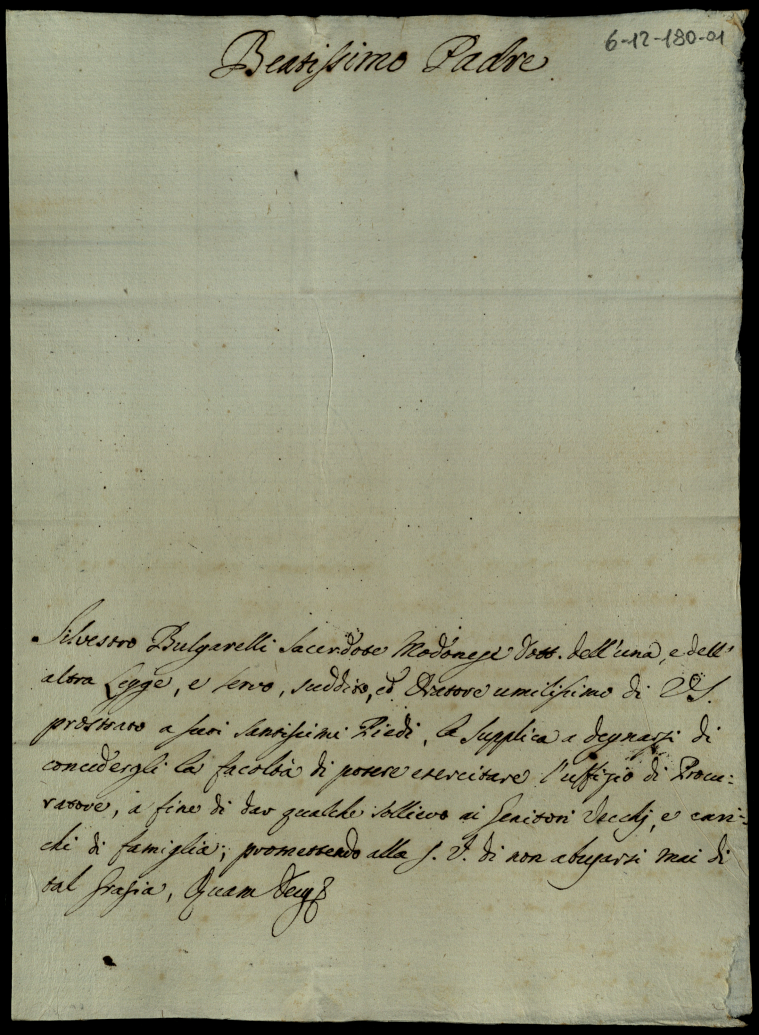 6-12-180-01
Beatissimo Padre
Silvestro Bulgarelli Sacerdote Modonese Dott. dell'una, e dell'
altra Legge, e servo, suddito, ed Oratore umilissimo di V. S.
prostrato a suoi Santissimi Piedi, la supplica a degnarsi di
concedergli la facoltà di potere esercitare l'uffizio di Procu-
ratore, a fine di dar qualche sollievo ai Genitori Vecchj, e cari-
chi di famiglia; promettendo alla S. V. di non abusarsi mai di
tal Grazia, Quam Deus